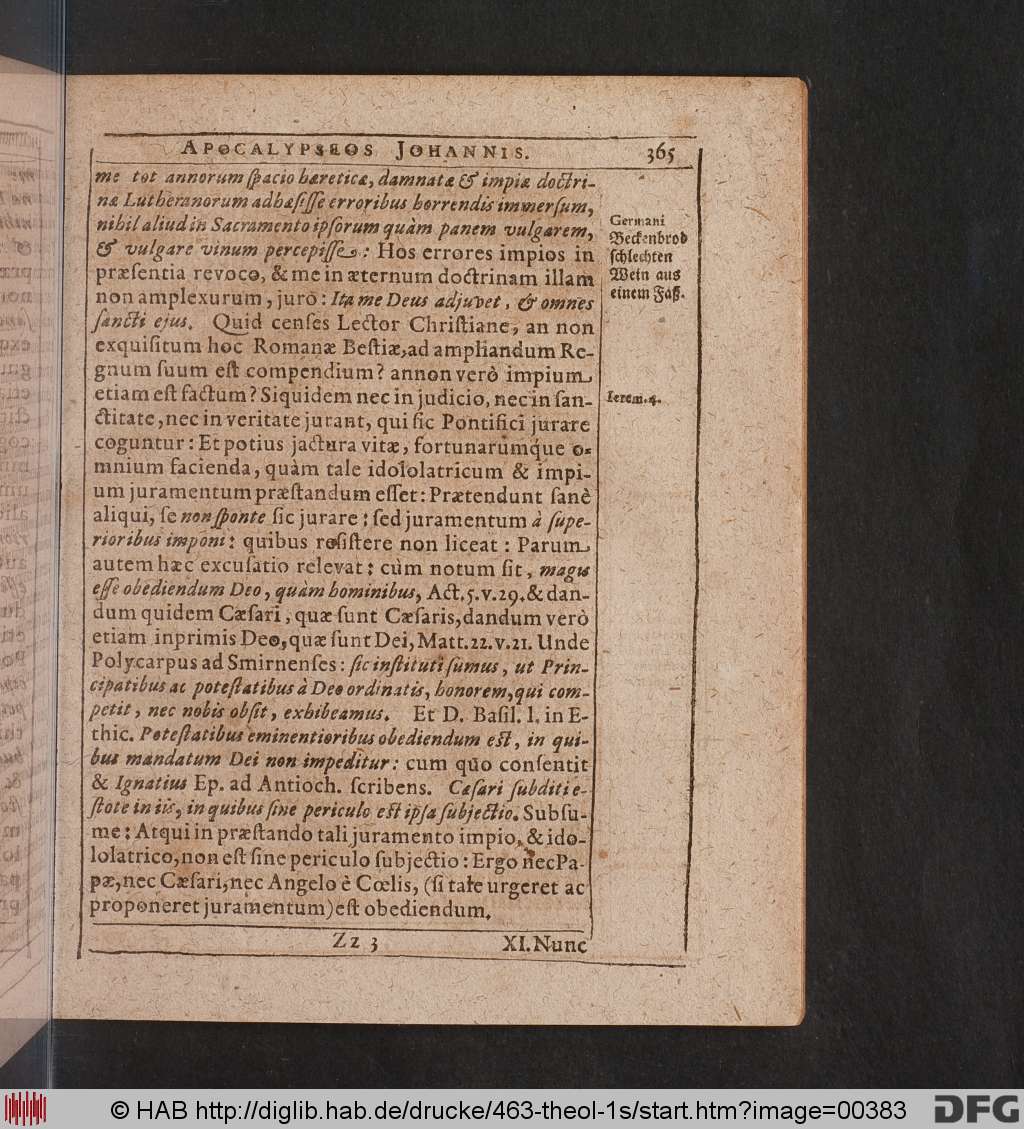 APOCALYPSEOS JOHANNIS. 365
me tot annorum ſpacio hæreticæ, damnatæ & impiæ doctri-
næ Lutheranorum adhæſiſſe erroribus horrendis immerſum,
nihil aliud in Sacramento ipſorum quàm panem vulgarem,
& vulgare vinum percepiſſe: Hos errores impios in
præſentia revoco, & me in æternum doctrinam illam
non amplexurum, juro: Ita me Deus adjuvet, & omnes
ſancti ejus. Quid cenſes Lector Chriſtiane, an non
exquiſitum hoc Romanæ Beſtiæ, ad ampliandum Re-
gnum ſuum eſt compendium? annon verò impium
etiam eſt factum? Siquidem nec in judicio, nec in ſan-
ctitate, nec in veritate jurant, qui ſic Pontifici jurare
coguntur: Et potius jactura vitæ, fortunarumq́ue o-
mnium facienda, quàm tale idololatricum & impi-
um juramentum præſtandum eſſet: Prætendunt ſanè
aliqui, ſe non ſponte ſic jurare: ſed juramentum à ſupe-
rioribus imponi: quibus reſiſtere non liceat: Parum
autem hæc excuſatio relevat: cùm notum ſit, magis
eſſe obediendum Deo, quàm hominibus, Act. 5. v. 29. & dan-
dum quidem Cæſari, quæ ſunt Cæſaris, dandum verò
etiam inprimis Deo, quæ ſunt Dei, Matt. 22. v. 21. Unde
Polycarpus ad Smirnenſes: ſic inſtituti ſumus, ut Prin-
cipatibus ac poteſtatibus à Deo ordinatis, honorem, qui com-
petit, nec nobis obſit, exhibeamus. Et D. Baſil. l. in E-
thic. Poteſtatibus eminentioribus obediendum eſt, in qui-
bus mandatum Dei non impeditur: cum quo conſentit
& Ignatius Ep. ad Antioch. ſcribens. Cæſari ſubditi e-
ſtote in iis, in quibus ſine periculo eſt ipſa ſubjectio. Subſu-
me: Atqui in præſtando tali juramento impio, & ido-
lolatrico, non eſt ſine periculo ſubjectio: Ergo nec Pa-
pæ, nec Cæſari, nec Angelo è Cœlis, (ſi tale urgeret ac
proponeret juramentum) eſt obediendum.
Zz 3 XI. Nunc
Germani
Beckenbrod
ſchlechten
Wein aus
einem Faß.
Ierem. 4.
© HAB http://diglib.hab.de/drucke/463-theol-1s/start.htm?image=00383
DFG